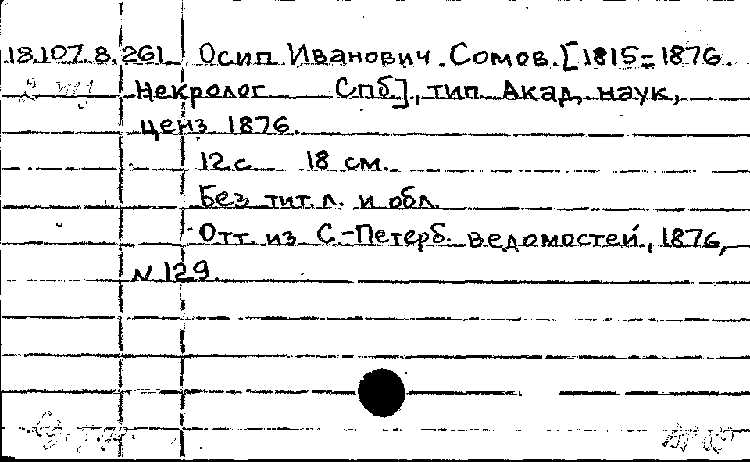 18.107.8.261 Осип Иванович Сомов. [1815=1876.
Некролог Спб], тип. Акад. наук,
ценз 1876.
12 с. 18 см.
Без тит. л. и обл.
Отт. из С.-Петерб. ведомостей, 1876,
№ 129.